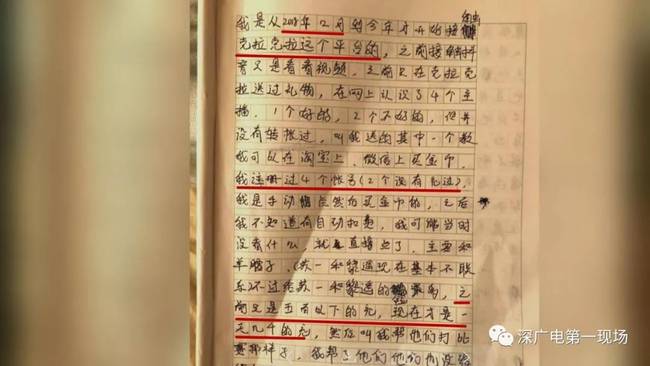 我是从2018年2月到今年才开始接触
克拉克拉这个平台的，之前接触抖
音又是看看视频，之前只在克拉克
拉送过礼物，在网上认识了4个主
播，1个好的，2个不好的，但并
没有转帐过，叫我送的其中一个教
我可以在淘宝上、微信上买金币，
我注册过4个帐号(2个没有充过)，
我是手动点然后买金币的，之后
我不知道有自动扣是，我可能当时
没看什么，就直接点了，主要和
单腊子，(苏一和黎遇现在基本不联
系)不过给苏一和黎遇的最多，之
前又是五百以下的充，现在才是一
天几千的充，然后叫我帮他们打比
赛那样子，我帮了他们他们也没给
深广电第一现场